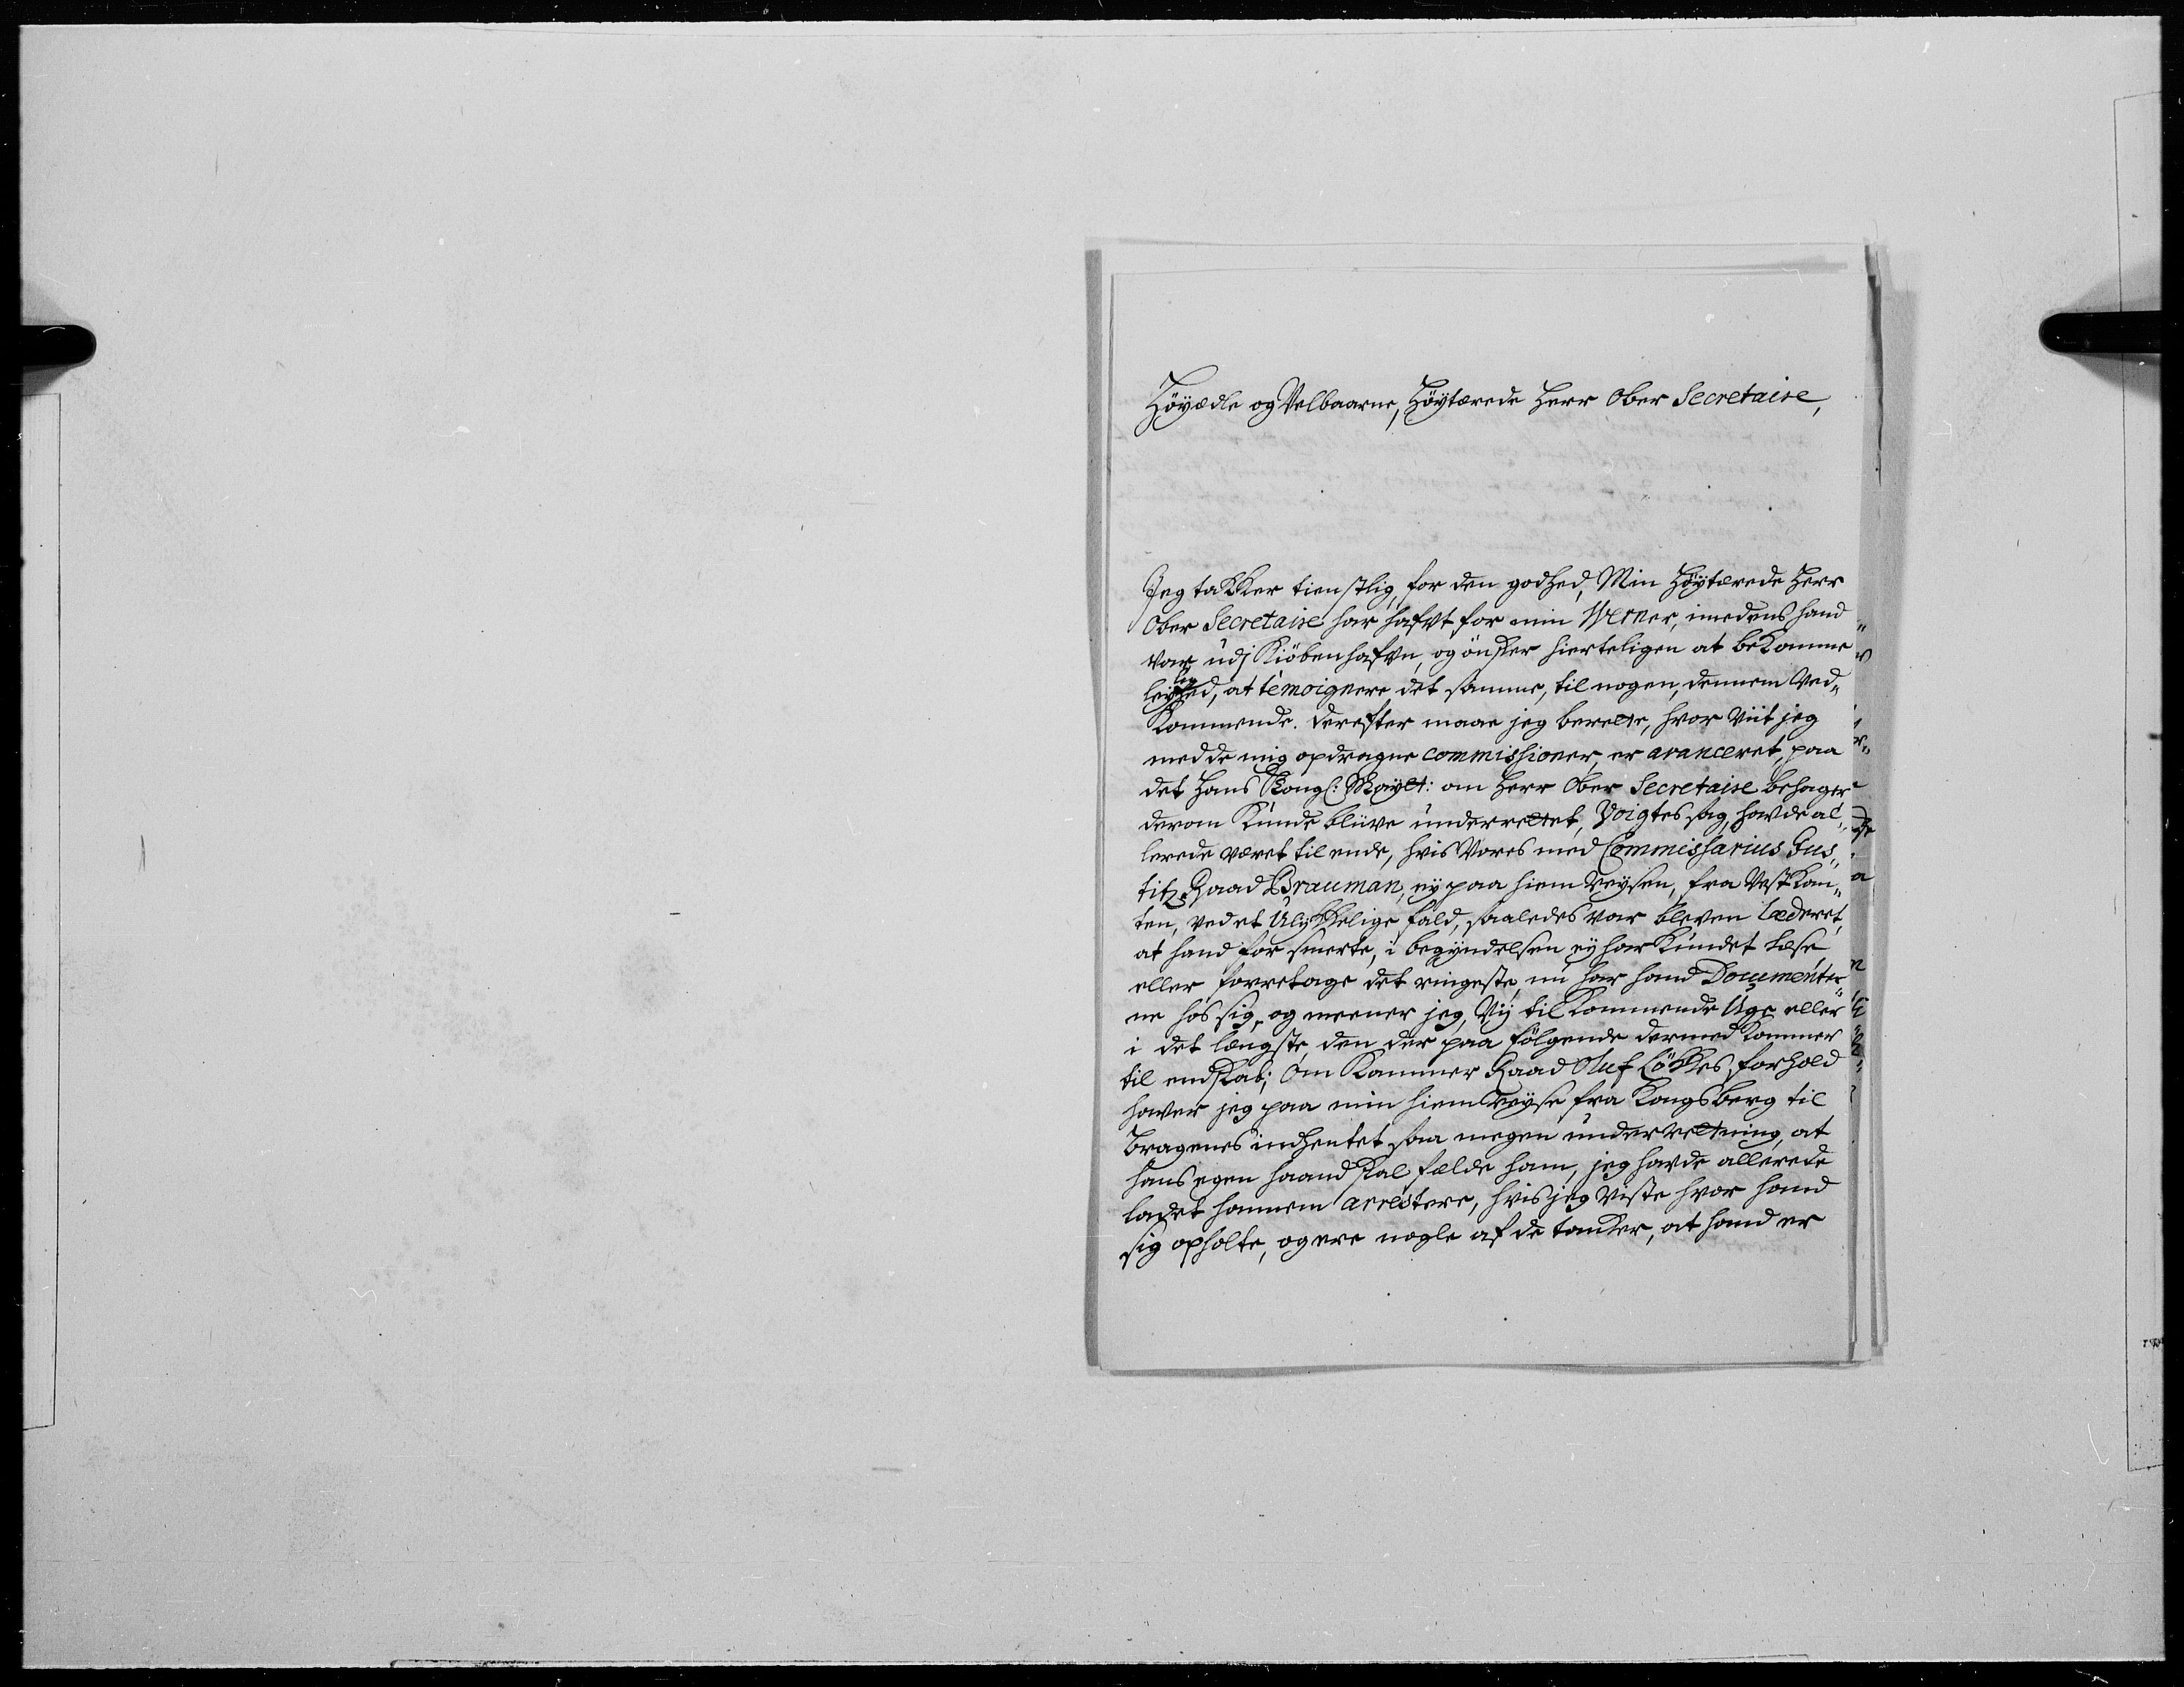 Höyædle og Velbaarne, Höytærede Herr Ober Secretaire,
Jeg takker tienstlig, for den godhed, Min Höytærede Herr
Ober Secretaire har hafvt for min Werner, imedens hand
var udj Kiöbenhafvn, og önsker hierteligen at bekomme
leylighed, at têmoignere det samme, til nogen, dennem Ved„
kommende. derefter maae jeg berette, hvor viit jeg
med de mig opdragne commissioner, er avanceret, paa
det Hans Kongl: Mayet: om Herr Ober Secretaire behager
derom kunde blive underrettet, Voigtes sag, havde al„
lerede været til ende, hvis Vores med Commissarius Jus„
titz Raad Brauman, ey paa hiem Reysen, fra Vestkan„
ten, ved et Ulykkelige fald, saaledes var bleven læderet,
at hand for smerte, i begyndelsen ey har kundet læse
eller foretage det ringeste, nu har hand Documenter„
ne hos sig, og meener jeg, Vij tilkommende Uge eller
i det længste, den der paa fölgende dermed kommer
til endskab; Om Kammer Raad Oluf Lökkes forhold
haver jeg paa min hiemreyse fra Kongsberg til
Bragenes indhentet saa megen underretning, at
hans egen haand skal fælde ham, jeg havde allerede
ladet hannem arrestere, hvis jeg viste hvor hand
sig opholte, og ere nogle af de tanker, at hand er